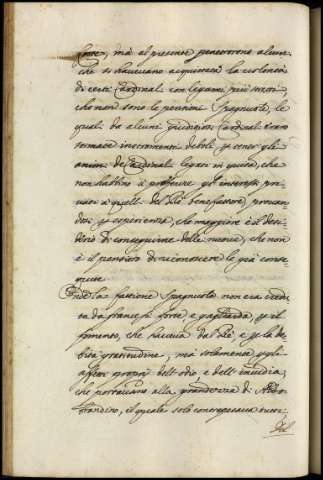 forte, mà al presente penetrorono alcuni
che si haueuano acquistata la uolontà
di certi Cardinali con legami più stretti,
che non sono le pensioni Spagnuole, le
quali da alcuni prudenti Cardinali erano
tornate instromenti deboli, p tener gli
animi de Cardinali legati in guisa, che
non habbino à preferire gl' interessi pri=
uati à quelli del Rè benefattore, prouan=
dosi p esperienza, che maggiore è il desi=
derio di conseguirne delle nuoue, che non
è il pensiero di riconoscere le già conse=
guite.
Onde la fattione Spagnuola non era credu=
ta da francesi forte, e gagliarda, p il
fomento, che haueua dal Rè, e p la de=
bita gratitudine, mà solamente p gli
affetti proprij dell' odio, e dell' inuidia,
che portauano alla grandezza di Aldo=
brandino, il quale solo contrapesaua tutti